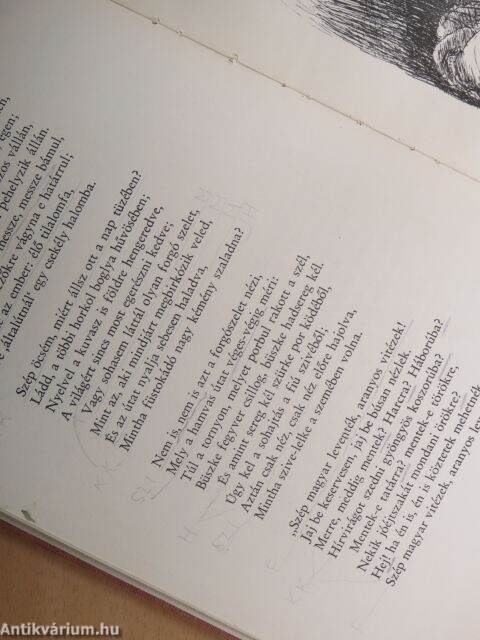 égen;
vállán,
pehelyzik állán.
messze, messze bámul,
vágyna e határrul;
az ember: élő tilalomfa,
'általútnál' egy csekély halomba.
Szép öcsém, miért állsz ott a nap tüzében?
Ládd, a többi horkol boglya hűvösében;
Nyelvel a kuvasz is földre hengeredve,
A világért sincs most egerészni kedve;
Vagy sohasem láttál olyan forgó szelet,
Mint az, aki mindjárt megbirkózik veled,
És az útat nyalja sebesen haladva,
Mintha füstokádó nagy kémény szaladna?
Nem is, nem is azt a forgószelet nézi,
Mely a hamvas útat véges-végig méri:
Túl a tornyon, melyet porbul rakott a szél,
Büszke fegyver csillog, büszke hadsereg kél.
És amint sereg kél szürke por ködéből,
Úgy kel a sohajtás a fiú szivéből;
Aztán csak néz, csak néz előre hajolva,
Mintha szive-lelke a szemében volna.
„Szép magyar leventék, aranyos vitézek!
Jaj be keservesen, jaj be búsan nézlek.
Merre, meddig mentek? Harcra? Háborúba?
Hírvirágot szedni gyöngyös koszorúba?
Mentek-e tatárra? mentek-e törökre,
Nekik jóéjtszakát mondani örökre?
Hej! ha én is, én is köztetek mehetnék,
Szép magyar vitézek, aranyos
Antikvárium.hu